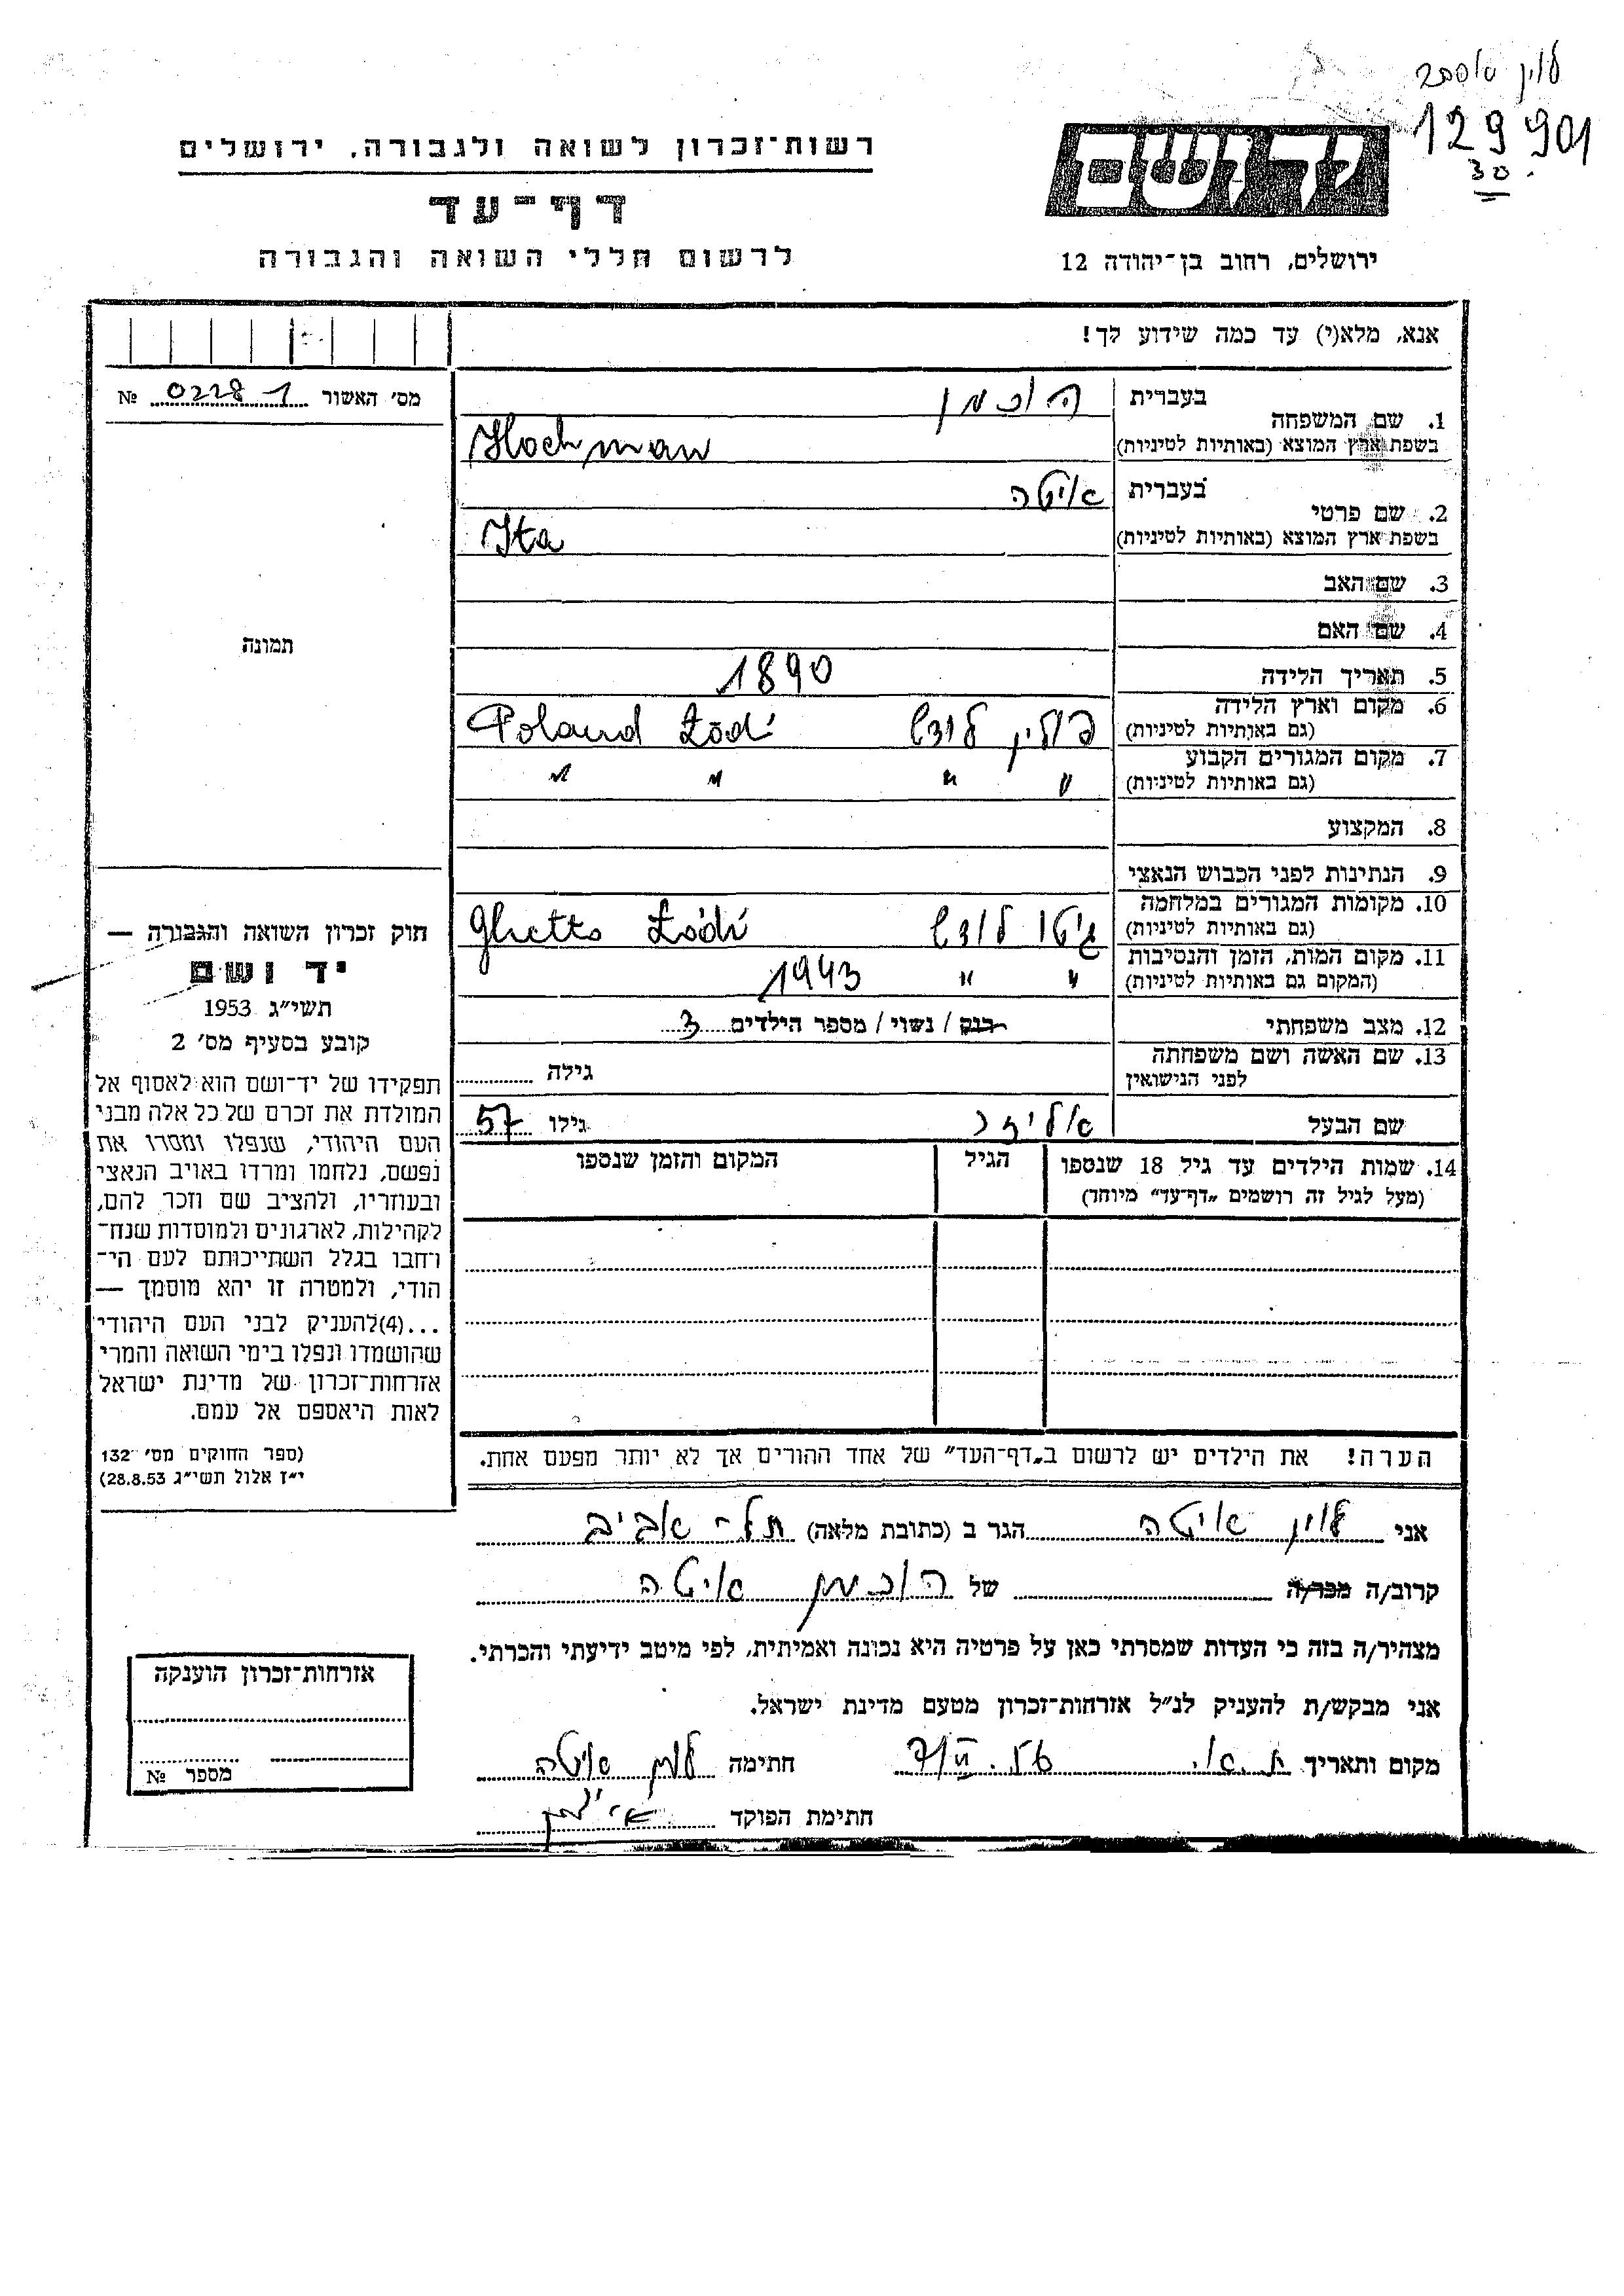 לוין
129901
30.
יד ושם
רשות־זכרון לשואה ולגבורה, ירושלים
דף־עד
לרשום חללי השואה והגבורה
ירושלים, רחוב בן־יהודה 12
אנא, מלא(י) עד כמה שידוע לך!
מס' האשור № 0228 1
1. שם המשפחה בעברית הוכמן
בשפת ארץ המוצא (באותיות לטיניות) Hochman
2. שם פרטי בעברית איטה
בשפת ארץ המוצא (באותיות לטיניות) Ita
3. שם האב
4. שם האם
תמונה
5. תאריך הלידה 1890
6. מקום וארץ הלידה (גם באותיות לטיניות) פולין לודש Poland Łódź
7. מקום המגורים הקבוע (גם באותיות לטיניות) " " " "
8. המקצוע
9. הנתינות לפני הכבוש הנאצי
10. מקומות המגורים במלחמה (גם באותיות לטיניות) גיטו לודש Ghetto Łódź
11. מקום המות, הזמן והנסיבות (המקום גם באותיות לטיניות) " " 1943
12. מצב משפחתי רווק / נשוי / מספר הילדים 3
13. שם האשה ושם משפחתה לפני הנישואין גילה
שם הבעל אליעזר גילו 57
14. שמות הילדים עד גיל 18 שנספו (מעל לגיל זה רושמים „דף־עד" מיוחד) הגיל המקום והזמן שנספו
הערה! את הילדים יש לרשום ב„דף־העד" של אחד ההורים אך לא יותר מפעם אחת.
חוק זכרון השואה והגבורה —
יד ושם
תשי"ג 1953
קובע בסעיף מס' 2
תפקידו של יד־ושם הוא לאסוף אל
המולדת את זכרם של כל אלה מבני
העם היהודי, שנפלו ומסרו את
נפשם, נלחמו ומרדו באויב הנאצי
ובעוזריו, ולהציב שם וזכר להם,
לקהילות, לארגונים ולמוסדות שנח־
רחבו בגלל השתייכותם לעם הי־
הודי, ולמטרה זו יהא מוסמך —
...(4)להעניק לבני העם היהודי
שהושמדו ונפלו בימי השואה והמרי
אזרחות־זכרון של מדינת ישראל
לאות היאספם אל עמם.
(ספר החוקים מס' 132
י"ז אלול תשי"ג 28.8.53)
אני לוין איטה הגר ב (כתובת מלאה) תל־אביב
קרוב/ה מכר/ה של הוכמן איטה
מצהיר/ה בזה כי העדות שמסרתי כאן על פרטיה היא נכונה ואמיתית, לפי מיטב ידיעתי והכרתי.
אני מבקש/ת להעניק לנ"ל אזרחות־זכרון מטעם מדינת ישראל.
מקום ותאריך ת.א. חתימה לוין איטה
חתימת הפוקד
אזרחות־זכרון הוענקה
מספר №